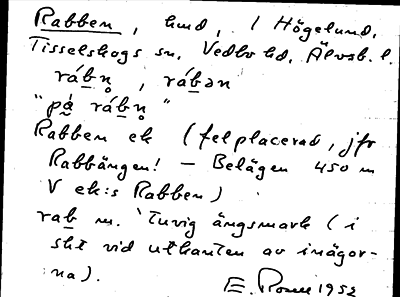 Rabben, hmd, i Högelund,
Tisselskogs sn, Vedbo hd, Älvsb. l.
rábn̥, rábən
"på rábn̥"
Rabben ek (felplacerad, jfr
Rabbängen! — Belägen 450 m
V ek:s Rabben)
rab m. 'Tuvig ängsmark (i
sht vid utkanten av inägor-
na).
E. 1952